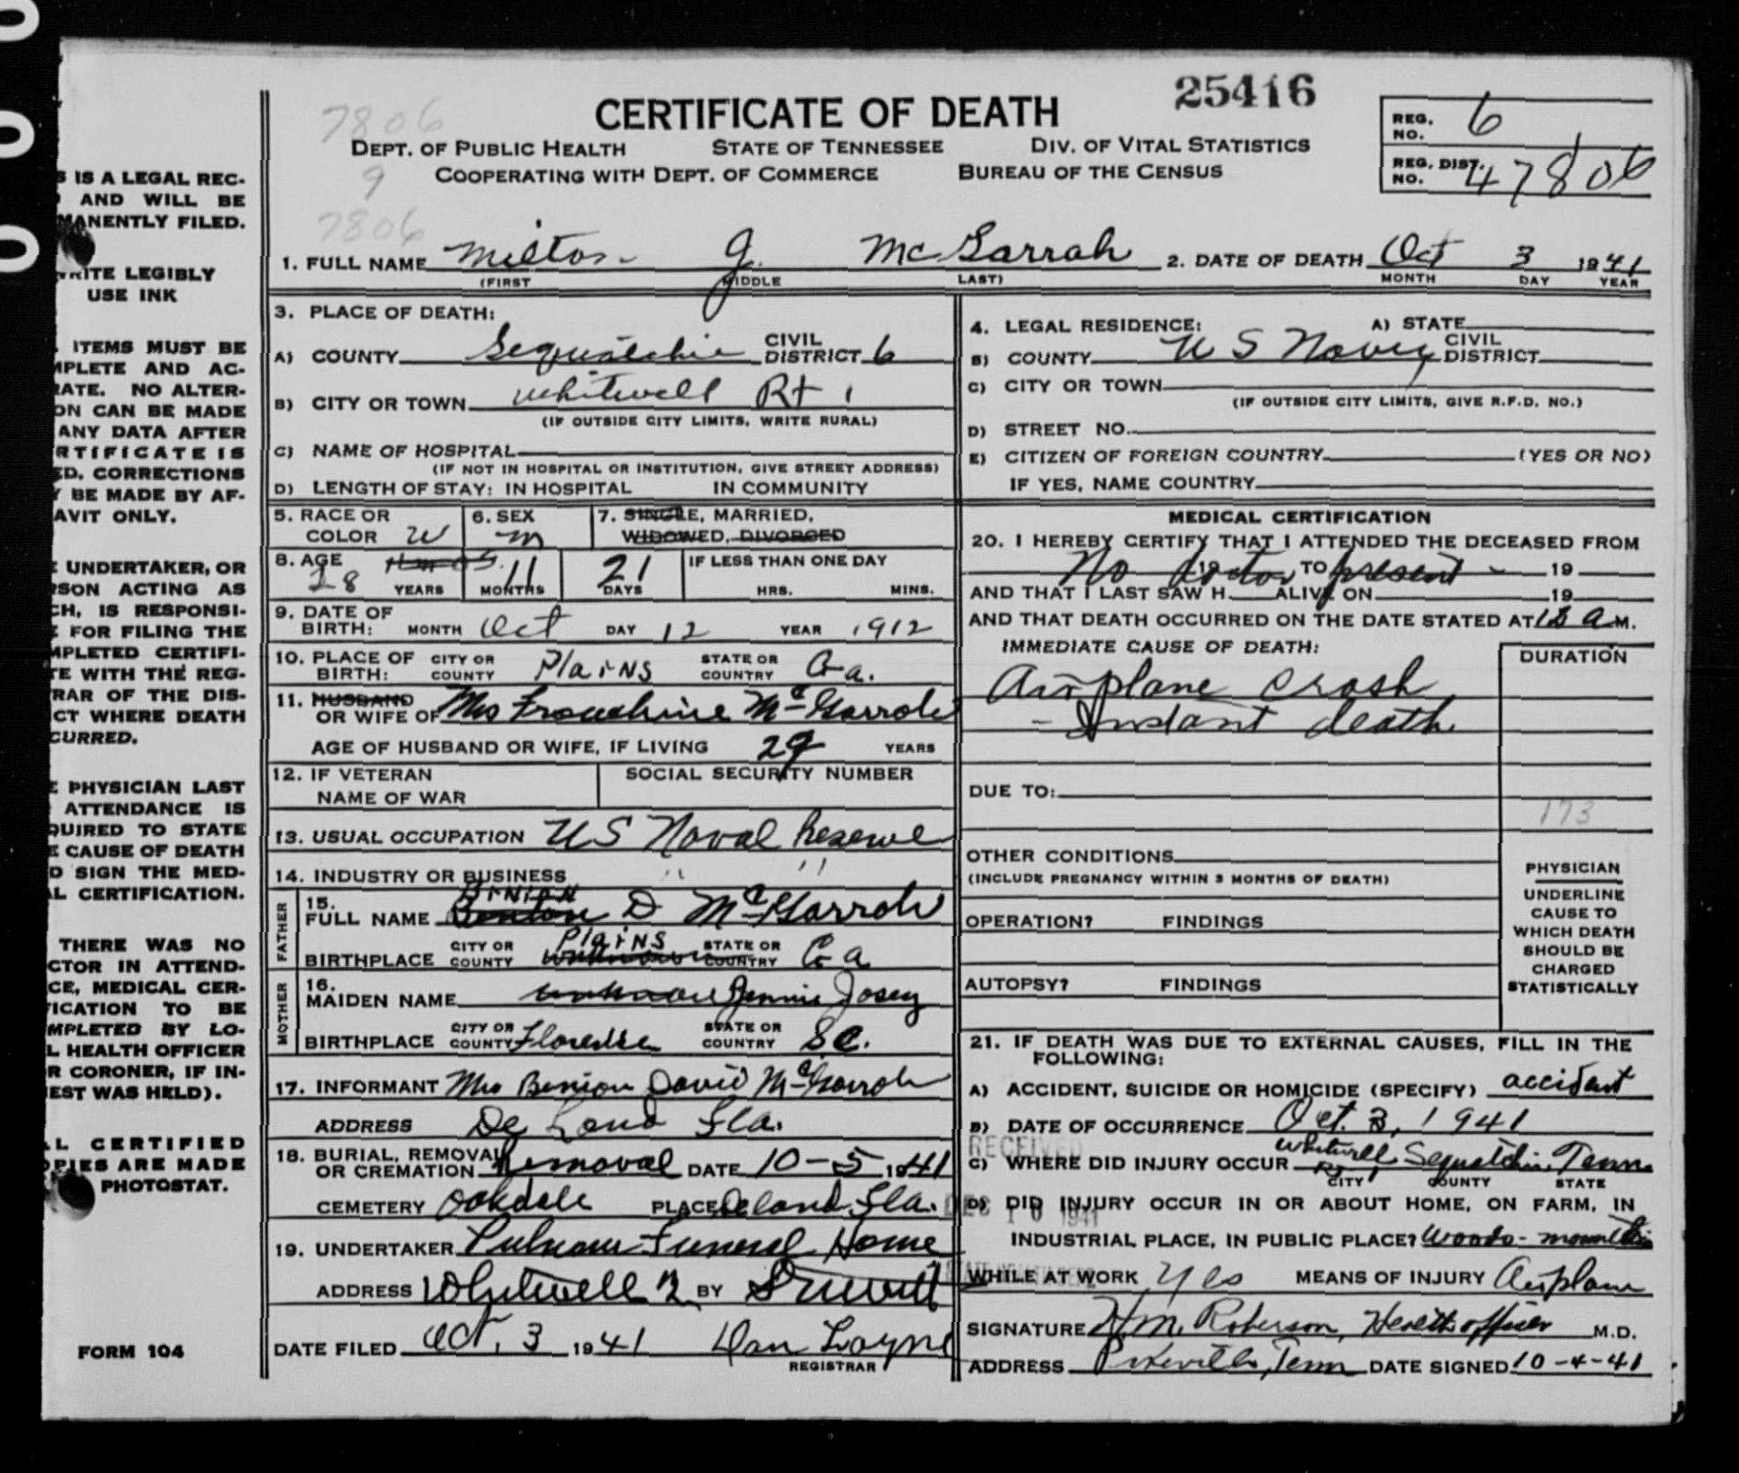 25416
7806
CERTIFICATE OF DEATH
REG. NO. 6
DEPT. OF PUBLIC HEALTH STATE OF TENNESSEE DIV. OF VITAL STATISTICS
9 COOPERATING WITH DEPT. OF COMMERCE BUREAU OF THE CENSUS
REG. DIST. NO. 47806
7806
1. FULL NAME Milton J. McGarrah 2. DATE OF DEATH Oct 3 1941
(FIRST MIDDLE LAST) MONTH DAY YEAR
3. PLACE OF DEATH:
A) COUNTY Sequatchie CIVIL DISTRICT 6
B) CITY OR TOWN Whitwell Rt 1
(IF OUTSIDE CITY LIMITS, WRITE RURAL)
C) NAME OF HOSPITAL
(IF NOT IN HOSPITAL OR INSTITUTION, GIVE STREET ADDRESS)
D) LENGTH OF STAY: IN HOSPITAL IN COMMUNITY
4. LEGAL RESIDENCE: A) STATE
B) COUNTY U S Navy CIVIL DISTRICT
C) CITY OR TOWN
(IF OUTSIDE CITY LIMITS, GIVE R.F.D. NO.)
D) STREET NO.
E) CITIZEN OF FOREIGN COUNTRY (YES OR NO)
IF YES, NAME COUNTRY
5. RACE OR COLOR W 6. SEX M 7. SINGLE, MARRIED, WIDOWED, DIVORCED
8. AGE 28 YEARS 11 MONTHS 21 DAYS IF LESS THAN ONE DAY HRS. MINS.
9. DATE OF BIRTH: MONTH Oct DAY 12 YEAR 1912
10. PLACE OF BIRTH: CITY OR COUNTY Plains STATE OR COUNTRY Ga.
11. HUSBAND OR WIFE OF Mrs McGarrah
AGE OF HUSBAND OR WIFE, IF LIVING 29 YEARS
12. IF VETERAN NAME OF WAR SOCIAL SECURITY NUMBER
13. USUAL OCCUPATION US Naval Reserve
14. INDUSTRY OR BUSINESS " "
FATHER
15. FULL NAME Benton Binion D McGarrah
BIRTHPLACE CITY OR COUNTY unknown Plains STATE OR COUNTRY Ga
MOTHER
16. MAIDEN NAME unknown Jennie Josey
BIRTHPLACE CITY OR COUNTY Florence STATE OR COUNTRY S.C.
17. INFORMANT Mrs Benion David McGarrah
ADDRESS De Land Fla.
18. BURIAL, REMOVAL OR CREMATION Removal DATE 10-5 1941
CEMETERY Oakdale PLACE Deland Fla.
19. UNDERTAKER Putnam Funeral Home
ADDRESS Whitwell BY
DATE FILED Oct. 3 1941 Dan Layne
REGISTRAR
MEDICAL CERTIFICATION
20. I HEREBY CERTIFY THAT I ATTENDED THE DECEASED FROM
No doctor present 19 TO 19
AND THAT I LAST SAW H ALIVE ON 19
AND THAT DEATH OCCURRED ON THE DATE STATED AT A M.
IMMEDIATE CAUSE OF DEATH:
DURATION
Airplane crash
- Instant death.
DUE TO:
173
OTHER CONDITIONS
(INCLUDE PREGNANCY WITHIN 3 MONTHS OF DEATH)
OPERATION? FINDINGS
AUTOPSY? FINDINGS
PHYSICIAN
UNDERLINE
CAUSE TO
WHICH DEATH
SHOULD BE
CHARGED
STATISTICALLY
21. IF DEATH WAS DUE TO EXTERNAL CAUSES, FILL IN THE
FOLLOWING:
A) ACCIDENT, SUICIDE OR HOMICIDE (SPECIFY) accident
B) DATE OF OCCURRENCE Oct. 3, 1941
RECEIVED
C) WHERE DID INJURY OCCUR Whitwell Rt 1 Sequatchie, Tenn
CITY COUNTY STATE
DEC 10 1941
D) DID INJURY OCCUR IN OR ABOUT HOME, ON FARM, IN
INDUSTRIAL PLACE, IN PUBLIC PLACE? Woods - mountain
WHILE AT WORK Yes MEANS OF INJURY Airplane
SIGNATURE H.M. Roberson, Health officer M.D.
ADDRESS Pikeville, Tenn DATE SIGNED 10-4-41
S IS A LEGAL REC-
AND WILL BE
MANENTLY FILED.
WRITE LEGIBLY
USE INK
ITEMS MUST BE
MPLETE AND AC-
RATE. NO ALTER-
ON CAN BE MADE
ANY DATA AFTER
RTIFICATE IS
ED. CORRECTIONS
Y BE MADE BY AF-
AVIT ONLY.
E UNDERTAKER, OR
RSON ACTING AS
CH, IS RESPONSI-
E FOR FILING THE
MPLETED CERTIFI-
TE WITH THE REG-
RAR OF THE DIS-
CT WHERE DEATH
CURRED.
E PHYSICIAN LAST
ATTENDANCE IS
QUIRED TO STATE
E CAUSE OF DEATH
D SIGN THE MED-
AL CERTIFICATION.
THERE WAS NO
CTOR IN ATTEND-
CE, MEDICAL CER-
FICATION TO BE
MPLETED BY LO-
L HEALTH OFFICER
R CORONER, IF IN-
EST WAS HELD).
LL CERTIFIED
OPIES ARE MADE
PHOTOSTAT.
FORM 104